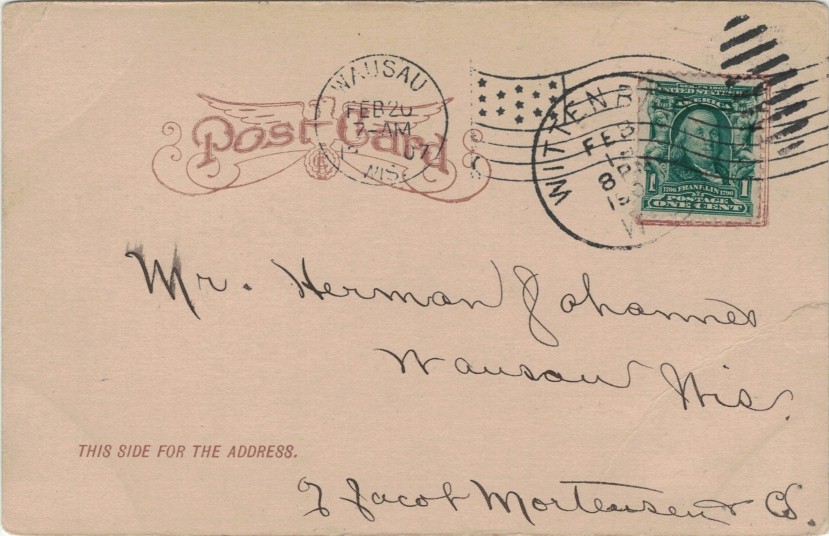 Post Card
WAUSAU
FEB 20
7-AM
WIS.
WITTENB
FEB
8
UNITED STATES OF
AMERICA
1 1
1706 FRANKLIN 1790
POSTAGE
ONE CENT
Mr. Herman Johannes
Wausau Wis.
THIS SIDE FOR THE ADDRESS.
Jacob Mortensen & Co.